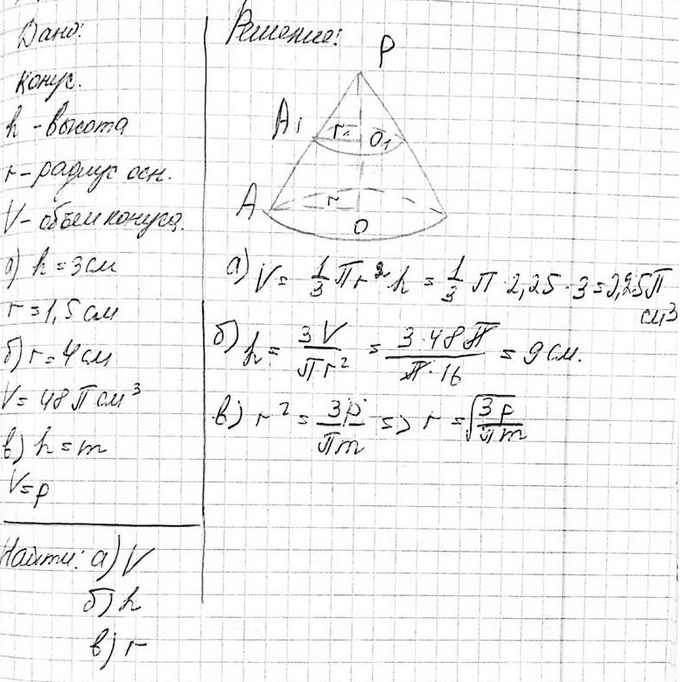 Дано:
конус.
h - высота
r - радиус осн.
V - объем конуса.
а) h = 3 см
r = 1,5 см
б) r = 4 см
V = 48π см³
в) h = m
V = p
Найти: а) V
б) h
в) r
Решение:
P
A₁ r₁ O₁
A r
O
а) V = 1/3 πr² · h = 1/3 π · 2,25 · 3 = 2,25π
см³
б) h = 3V/πr² = 3·48π/π·16 = 9 см.
в) r² = 3p/πm => r = √(3p/πm)